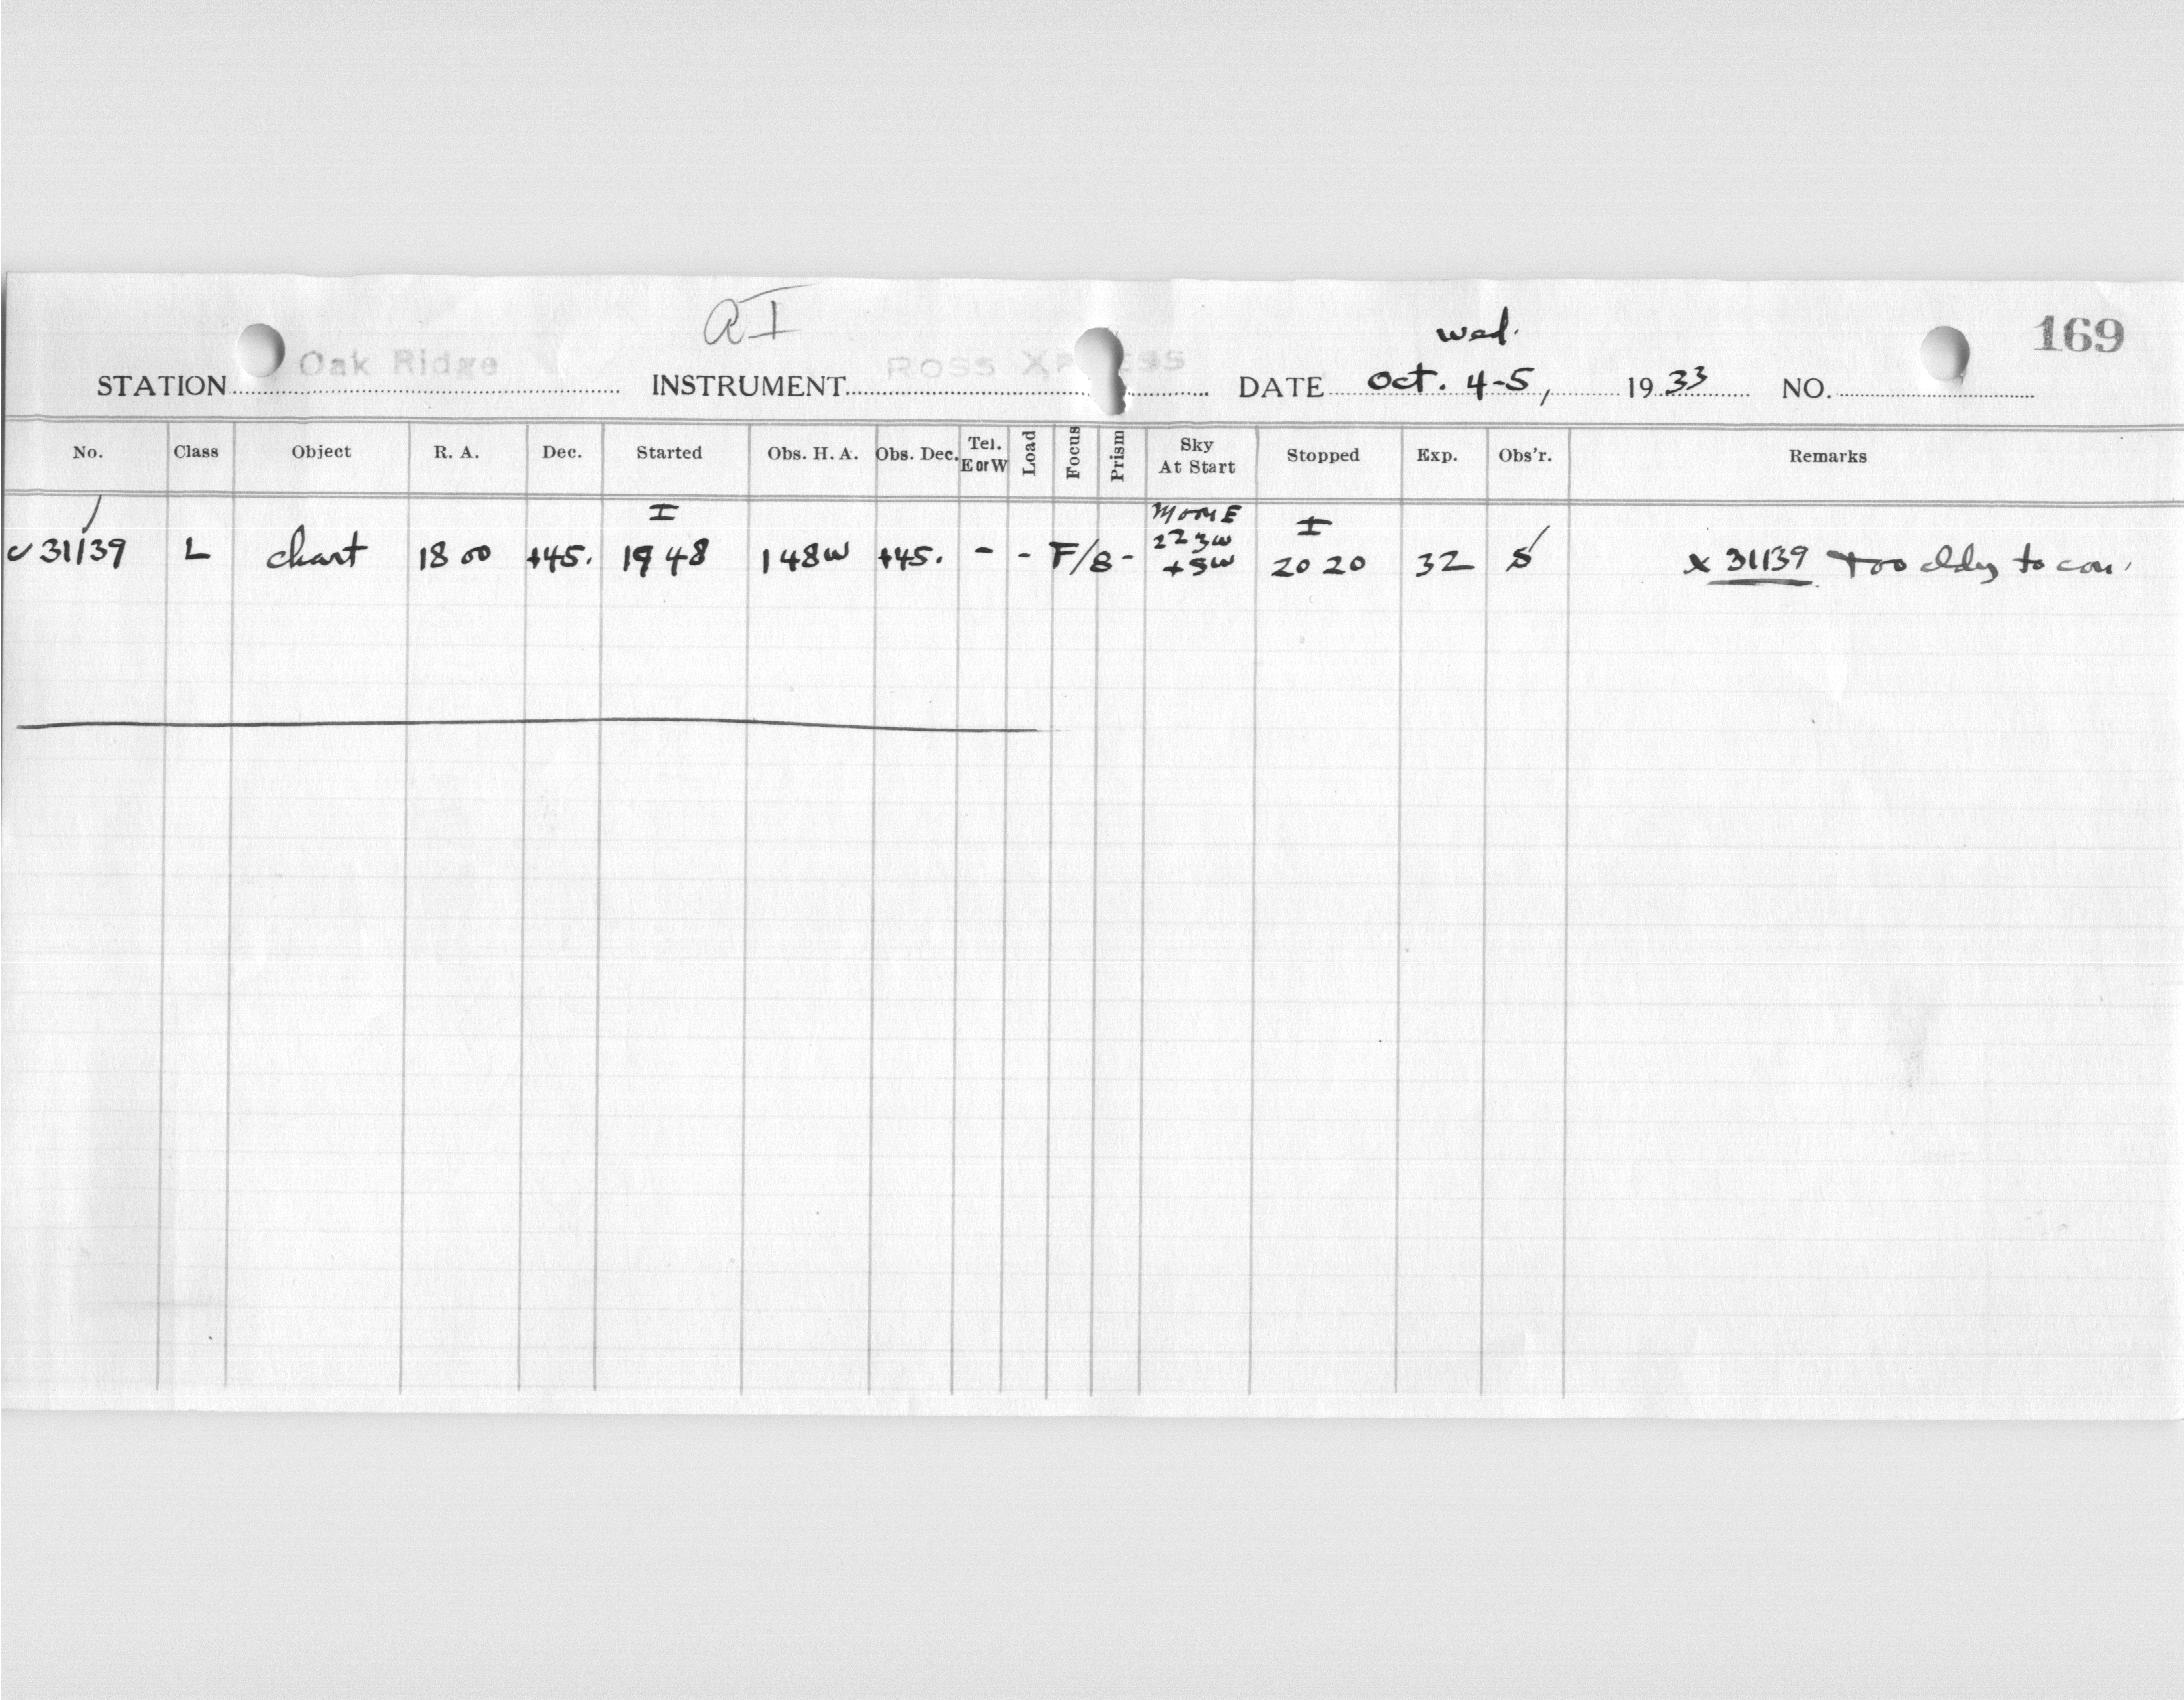 AI
wed.
169
STATION Oak Ridge INSTRUMENT ROSS DATE Oct. 4-5, 1933 NO.
No. Class Object R. A. Dec. Started Obs. H. A. Obs. Dec. Tel. E or W Load Focus Prism Sky At Start Stopped Exp. Obs'r. Remarks
I I
31139 L chart 18 00 +45. 19 48 1 48 W +45. - - F/8 - 2 23W +5W 20 20 32 S x 31139 Too cldy to con.